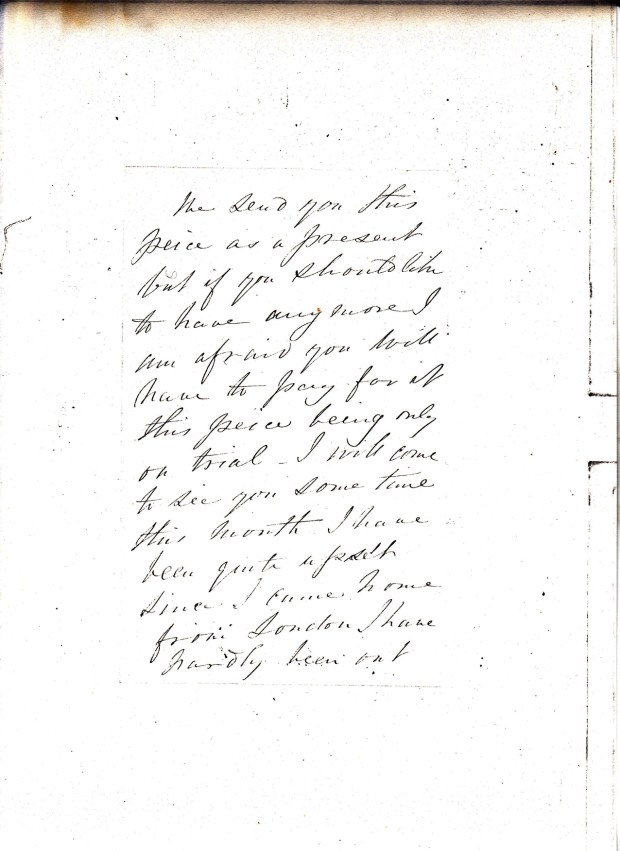 We send you this
peice as a present
but if you should like
to have any more I
am afraid you will
have to pay for it
this peice being only
on trial - I will come
to see you some time
this month I have
been quite upset
since I came home
from London I have
hardly been out